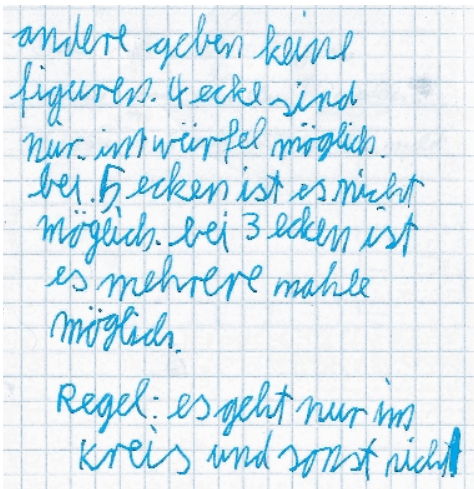 andere geben keine
figuren. 4 ecke sind
nur. im würfel möglich.
bei. 5 ecken ist es nicht
möglich. bei 3 ecken ist
es mehrere mahle
möglich.
Regel: es geht nur im
kreis und sonst nicht